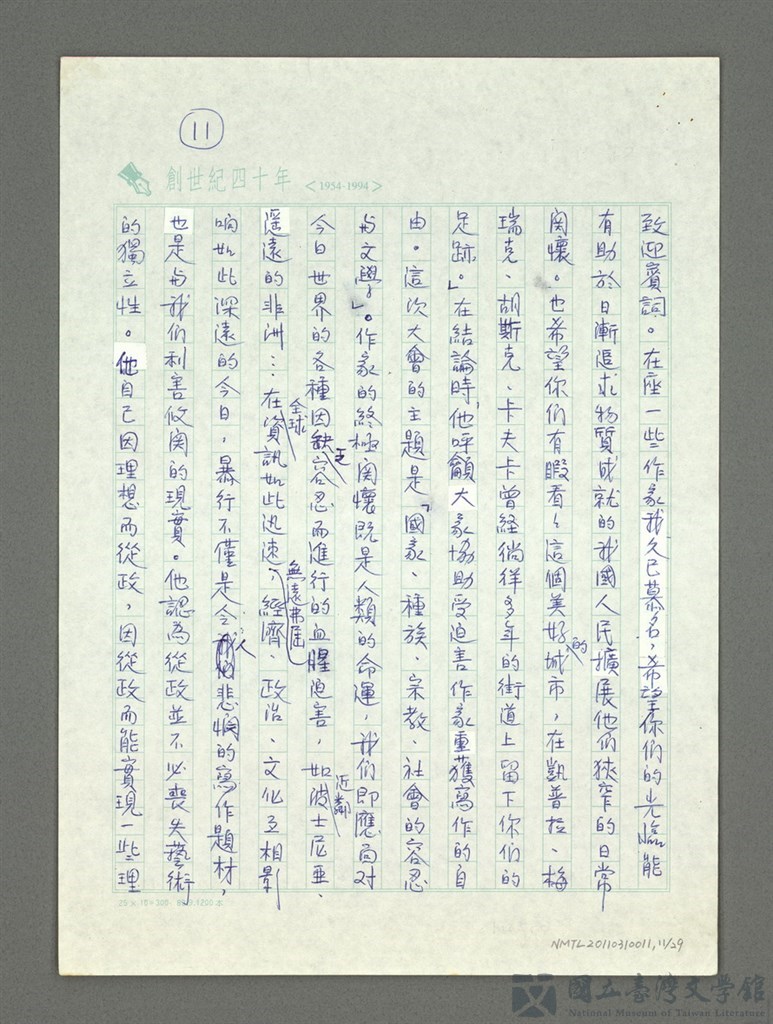 11
創世紀四十年 <1954-1994>
致迎賓詞。在座一些作家我久已慕名，希望你們的光臨能
有助於日漸追求物質成就的我國人民擴展他們狹窄的日常
關懷。也希望你們有暇看看這個美好的城市，在凱普拉、梅
瑞克、胡斯克、卡夫卡曾經徜徉多年的街道上留下你們的
足跡。」在結論時，他呼籲大家協助受迫害作家重獲寫作的自
由。這次大會的主題是「國家、種族、宗教、社會的容忍
与文學」。作家的終極関懷既是人類的命運，我們即應面对
今日世界的各種因缺乏容忍而進行的血腥迫害，如近鄰波士尼亜、
遥遠的非洲…在全球資訊如此迅速，無遠弗屆經濟、政治、文化互相影
响如此深遠的今日，暴行不僅是令人悲憫的寫作題材，
也是与我們利害攸関的現實。他認為從政並不必喪失藝術
的獨立性。他自己因理想而從政，因從政而能實現一些理
NMTL20110310011, 11/29
國立臺灣文學館
National Museum of Taiwan Literature